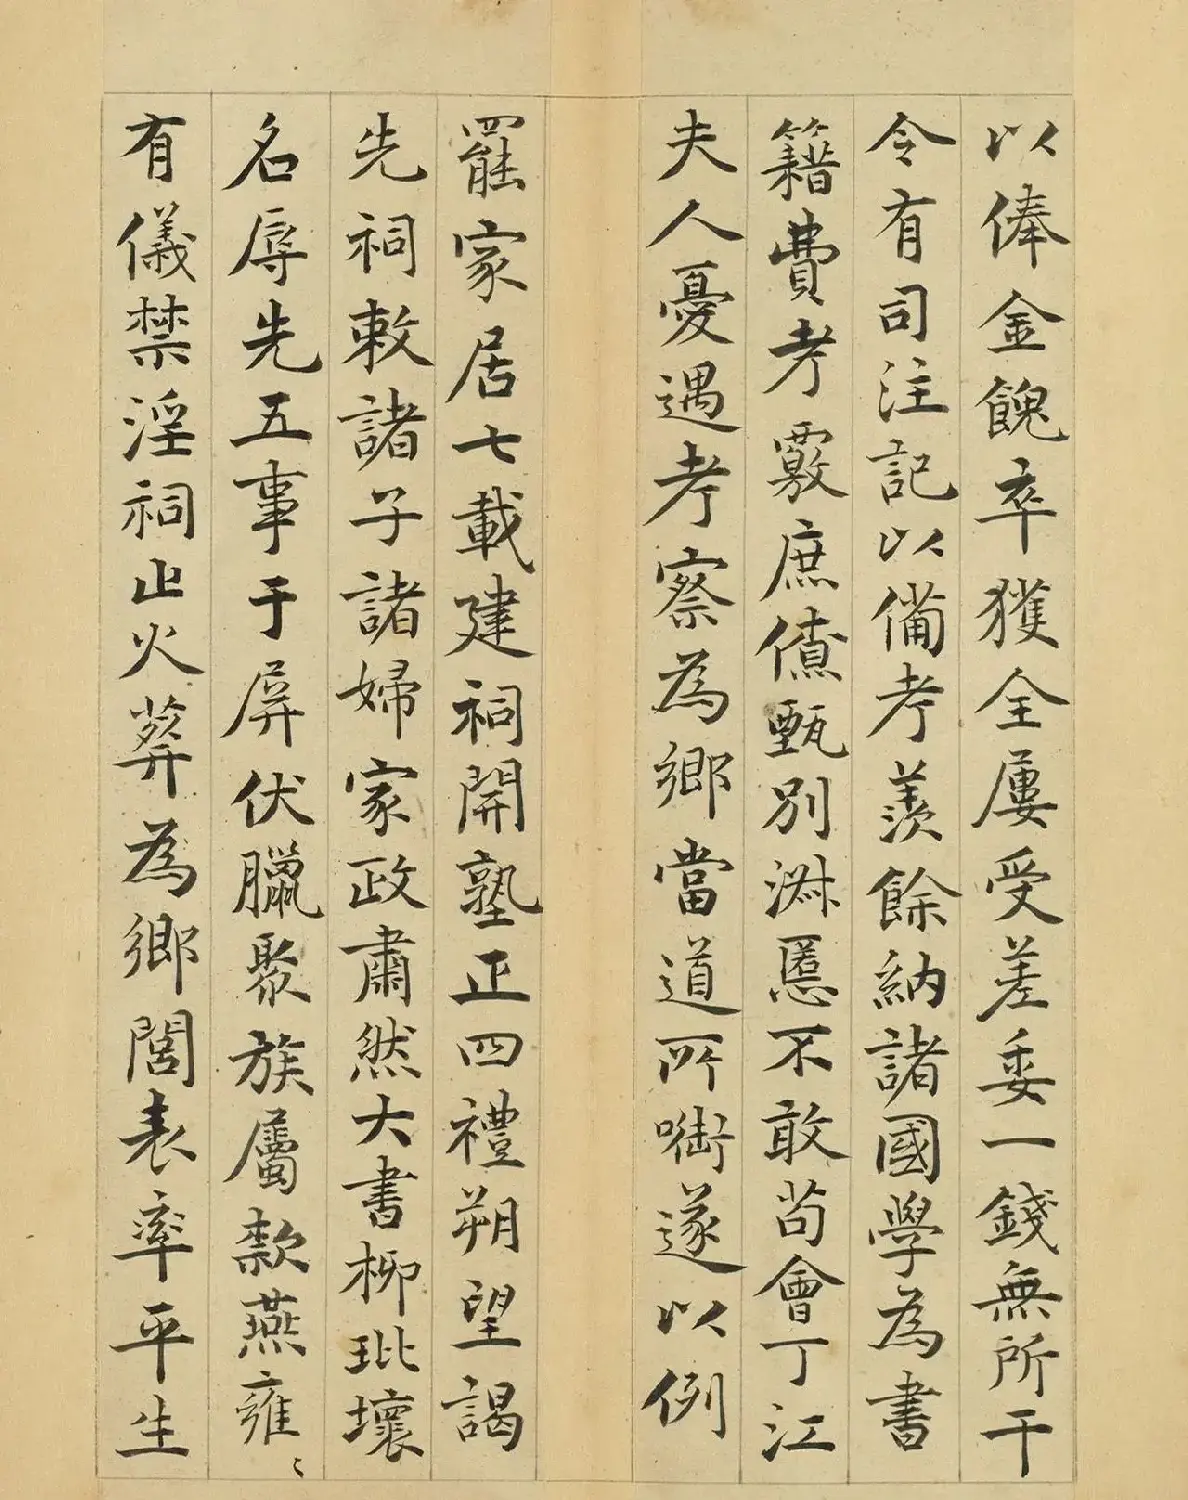 以俸金餽卒獲全屢受差委一錢無所干
令有司注記以備考羨餘納諸國學為書
籍費考覈庶僨甄別淑慝不敢苟會丁江
夫人憂遇考察為鄉當道所嗛遂以例
罷家居七載建祠開塾正四禮朔望謁
先祠敕諸子諸婦家政肅然大書柳玭壞
名辱先五事于屏伏臘聚族屬款燕雍〻
有儀禁淫祠止火葬為鄉閭表率平生